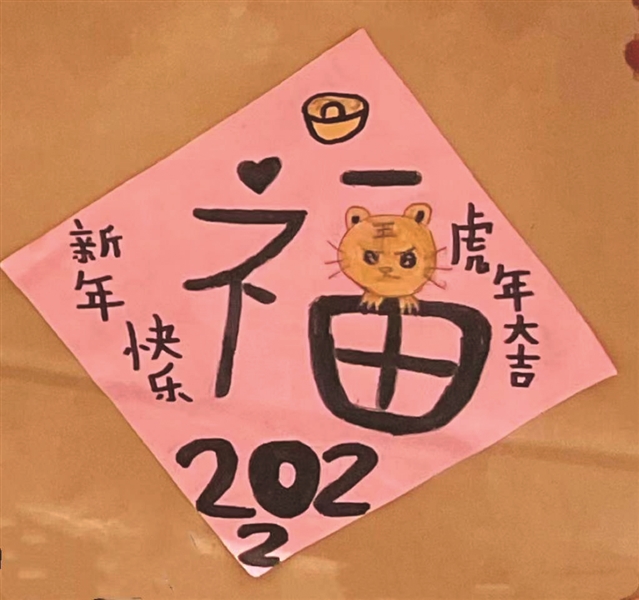 福
新年快乐
虎年大吉
王
2022